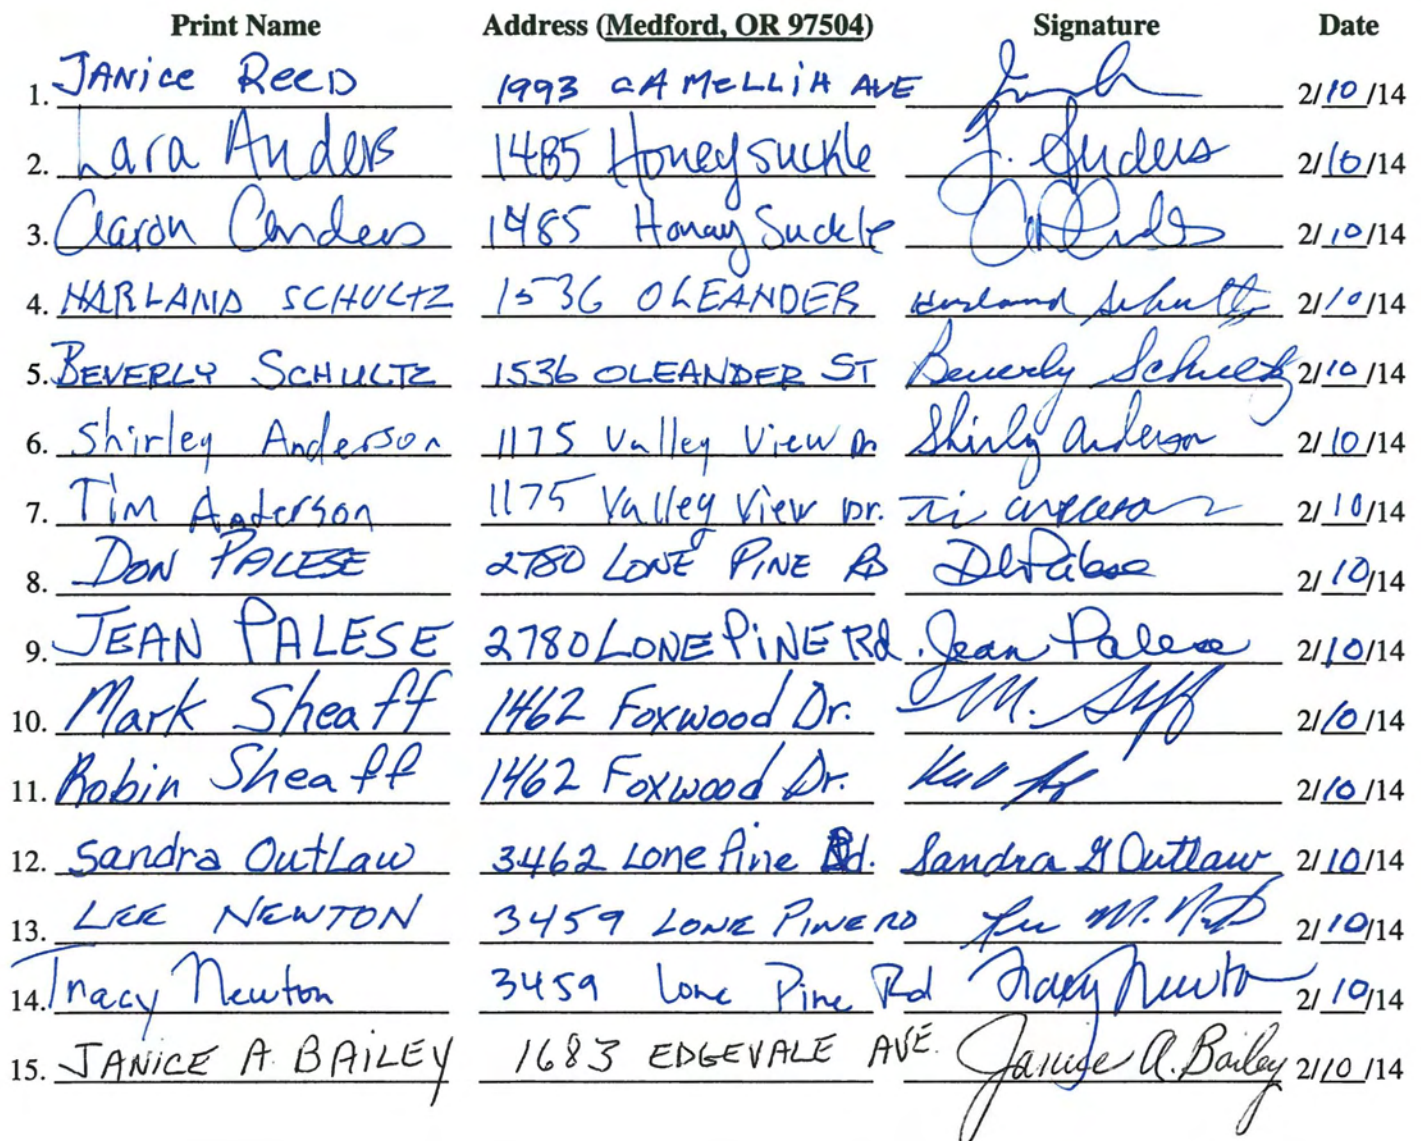 Print Name Address (Medford, OR 97504) Signature Date
1. JANICE REED 1993 CAMELLIA AVE 2/10/14
2. Lara Anders 1485 Honeysuckle L. Anders 2/10/14
3. Aaron Anders 1485 Honey Suckle 2/10/14
4. HARLAND SCHULTZ 1536 OLEANDER Harland Schultz 2/10/14
5. BEVERLY SCHULTZ 1536 OLEANDER ST Beverly Schultz 2/10/14
6. Shirley Anderson 1175 Valley View Dr Shirley Anderson 2/10/14
7. Tim Anderson 1175 Valley View Dr. Tim Anderson 2/10/14
8. DON PALESE 2780 LONE PINE RD 2/10/14
9. JEAN PALESE 2780 LONE PINE Rd. Jean Palese 2/10/14
10. Mark Sheaff 1462 Foxwood Dr. 2/10/14
11. Robin Sheaff 1462 Foxwood Dr. 2/10/14
12. Sandra OutLaw 3462 Lone Pine Rd. Sandra G Outlaw 2/10/14
13. LEE NEWTON 3459 LONE PINE RD Lee M. 2/10/14
14. Tracy Newton 3459 Lone Pine Rd Tracy Newton 2/10/14
15. JANICE A. BAILEY 1683 EDGEVALE AVE. Janice A. Bailey 2/10/14